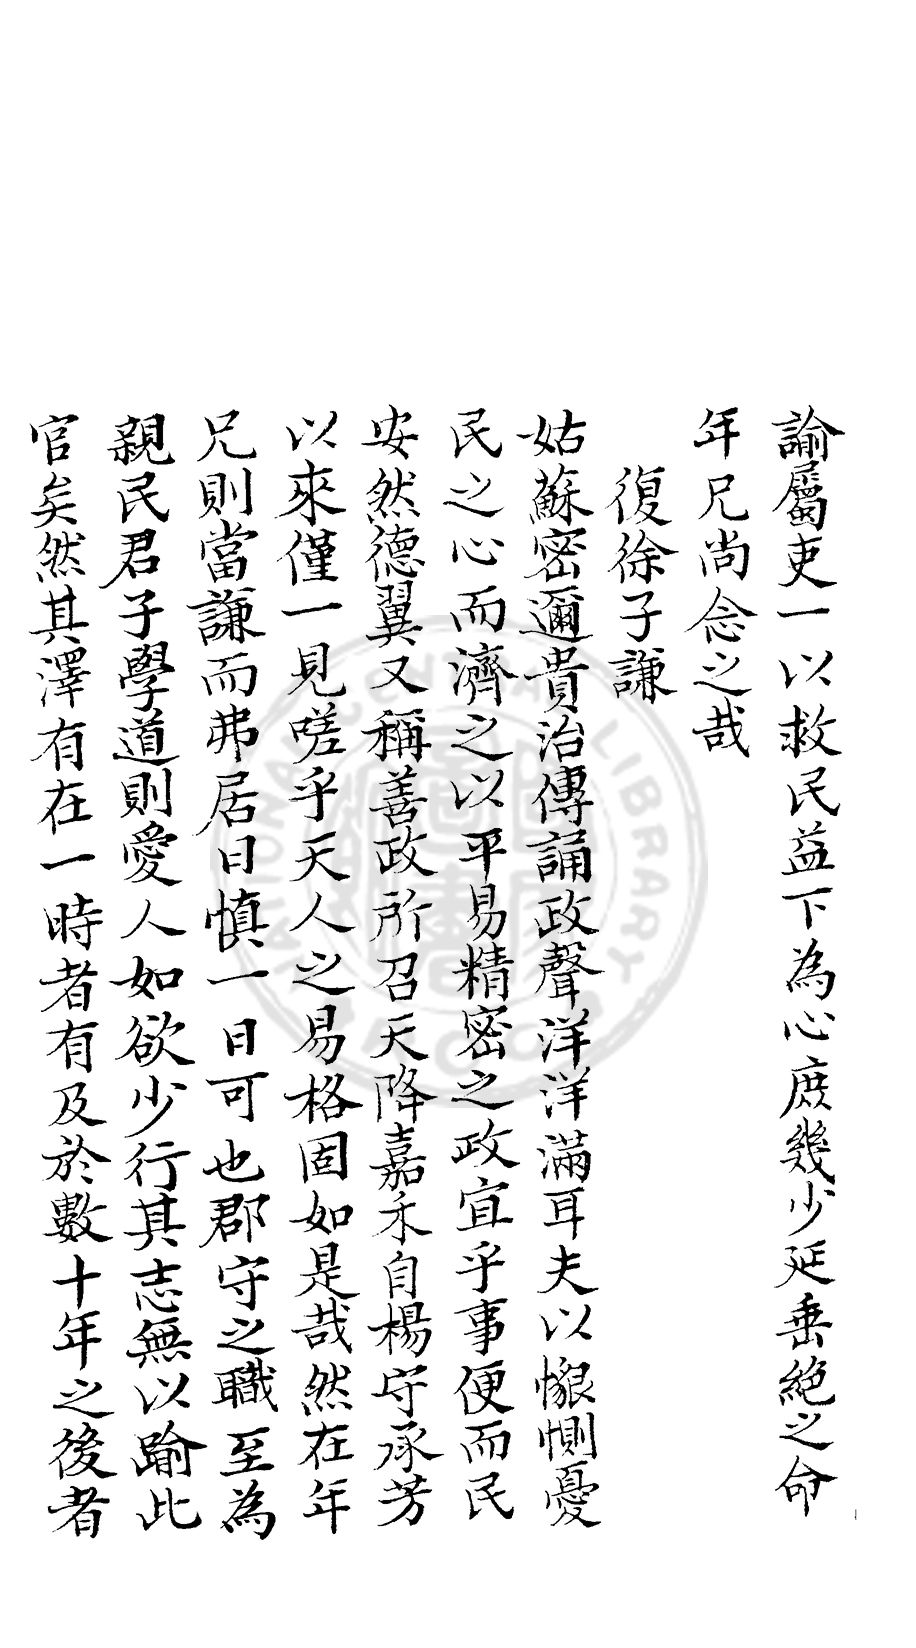 諭屬吏一以救民益下為心庶幾少延垂絶之命
年兄尚念之哉
復徐子謙
姑蘇密邇貴治傳誦政聲洋洋滿耳夫以懇惻憂
民之心而濟之以平易精密之政宜乎事便而民
安然德翼又稱善政所召天降嘉禾自楊守承芳
以來僅一見嗟乎天人之易格固如是哉然在年
兄則當謙而弗居日慎一日可也郡守之職至為
親民君子學道則愛人如欲少行其志無以踰此
官矣然其澤有在一時者有及於數十年之後者
NATIONAL CENTRAL LIBRARY